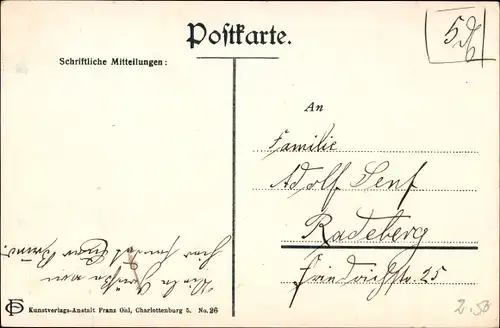 Postkarte.
5
Schriftliche Mitteilungen:
An
Familie
Adolf Senf
Radeberg
Friedrichstr. 25
Viele Grüße von
Kunstverlags-Anstalt Franz Gisl, Charlottenburg 5. No. 26
2.50